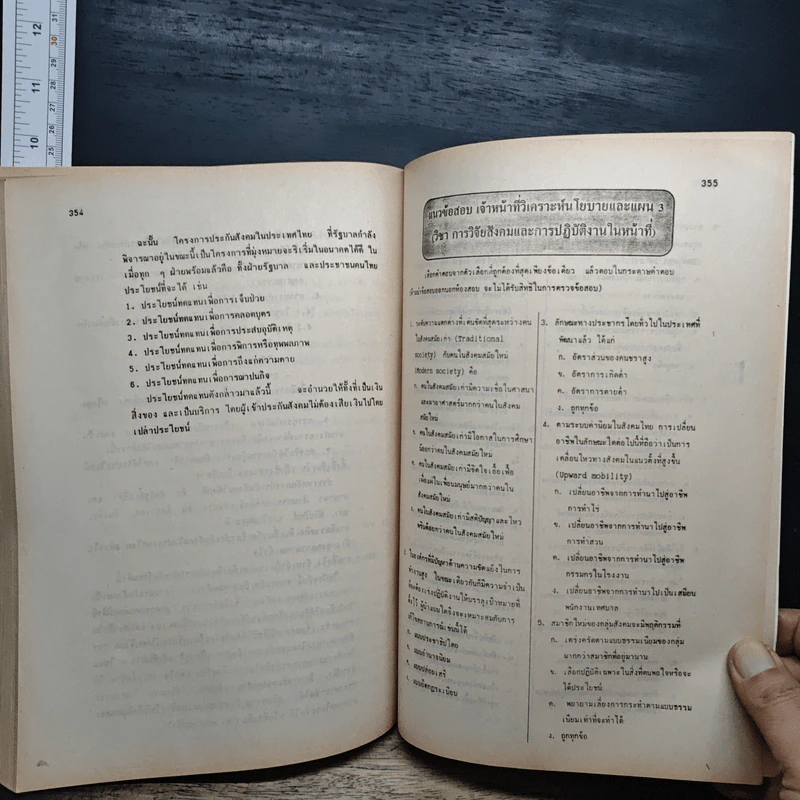 12
11
10
31
30
29
28
27
26
25
354
ฉะนั้น โครงการประกันสังคมในประเทศไทย ที่รัฐบาลกำลัง
พิจารณาอยู่ในขณะนี้เป็นโครงการที่มุ่งหมายจะริเริ่มในอนาคตได้ดี ใน
เมื่อทุก ๆ ฝ่ายพร้อมแล้วคือ ทั้งฝ่ายรัฐบาล และประชาชนคนไทย
ประโยชน์ที่จะได้ เช่น
1. ประโยชน์ทดแทนเพื่อการเจ็บป่วย
2. ประโยชน์ทดแทนเพื่อการคลอดบุตร
3. ประโยชน์ทดแทนเพื่อการประสบอุบัติเหตุ
4. ประโยชน์ทดแทนเพื่อการพิการหรือทุพพลภาพ
5. ประโยชน์ทดแทนเพื่อการถึงแก่ความตาย
6. ประโยชน์ทดแทนเพื่อการฌาปนกิจ
ประโยชน์ทดแทนดังกล่าวมาแล้วนี้ จะอำนวยให้ทั้งที่เป็นเงิน
สิ่งของ และเป็นบริการ โดยผู้เข้าประกันสังคมไม่ต้องเสียเงินไปโดย
เปล่าประโยชน์
355
แนวข้อสอบ เจ้าหน้าที่วิเคราะห์นโยบายและแผน 3
(วิชา การวิจัยสังคมและการปฏิบัติงานในหน้าที่)
เลือกคำตอบจากตัวเลือกที่ถูกต้องที่สุดเพียงข้อเดียว แล้วตอบในกระดาษคำตอบ
จะไม่ได้รับสิทธิในการตรวจข้อสอบ)
1. ระดับความแตกต่างที่เห็นชัดที่สุดระหว่างคน
ในสังคมสมัยเก่า (Traditional
society) กับคนในสังคมสมัยใหม่
(Modern society) คือ
ก. คนในสังคมสมัยเก่ามีความเชื่อในศาสนา
และมายาศาสตร์มากกว่าคนในสังคม
สมัยใหม่
ข. คนในสังคมสมัยเก่ามีโอกาสในการศึกษา
น้อยกว่าคนในสังคมสมัยใหม่
ค. คนในสังคมสมัยเก่ามีจิตใจเอื้อเฟื้อ
เผื่อแผ่ในเพื่อนมนุษย์มากกว่าคนใน
สังคมสมัยใหม่
ง. คนในสังคมสมัยเก่ามีสติปัญญาและไหว
พริบด้อยกว่าคนในสังคมสมัยใหม่
2. ในองค์กรที่มีปัญหาด้านความขัดแย้งในการ
ทำงานสูง ในขณะเดียวกันก็มีความจำเป็น
ที่จะต้องเร่งปฏิบัติงานให้บรรลุเป้าหมายที่
ตั้งไว้ ผู้นำแบบใดจึงจะเหมาะสมกับการ
สถานการณ์เช่นนี้ได้
ก. แบบประชาธิปไตย
ข. แบบอำนาจนิยม
ค. แบบปล่อยเสรี
ง. แบบยึดกฎระเบียบ
3. ลักษณะทางประชากรโดยทั่วไปในประเทศที่
พัฒนาแล้ว ได้แก่
ก. อัตราส่วนของคนชราสูง
ข. อัตราการเกิดต่ำ
ค. อัตราการตายต่ำ
ง. ถูกทุกข้อ
4. ตามระบบค่านิยมในสังคมไทย การเปลี่ยน
อาชีพในลักษณะใดต่อไปนี้ที่ถือว่าเป็นการ
เคลื่อนไหวทางสังคมในแนวตั้งที่สูงขึ้น
(Upward mobility)
ก. เปลี่ยนอาชีพจากการทำนาไปสู่อาชีพ
การทำไร่
ข. เปลี่ยนอาชีพจากการทำนาไปสู่อาชีพ
การทำสวน
ค. เปลี่ยนอาชีพจากการทำนาไปสู่อาชีพ
กรรมกรในโรงงาน
ง. เปลี่ยนอาชีพจากการทำนาไปเป็นเสมียน
พนักงานเทศบาล
5. สมาชิกใหม่ของกลุ่มสังคมจะมีพฤติกรรมที่
ก. เคร่งครัดตามแบบธรรมเนียมของกลุ่ม
มากกว่าสมาชิกที่อยู่มานาน
ข. เลือกปฏิบัติเฉพาะในสิ่งที่ตนพอใจหรือจะ
ได้ประโยชน์
ค. พยายามเลี่ยงการกระทำตามแบบธรรม
เนียมเท่าที่จะทำได้
ง. ถูกทุกข้อ